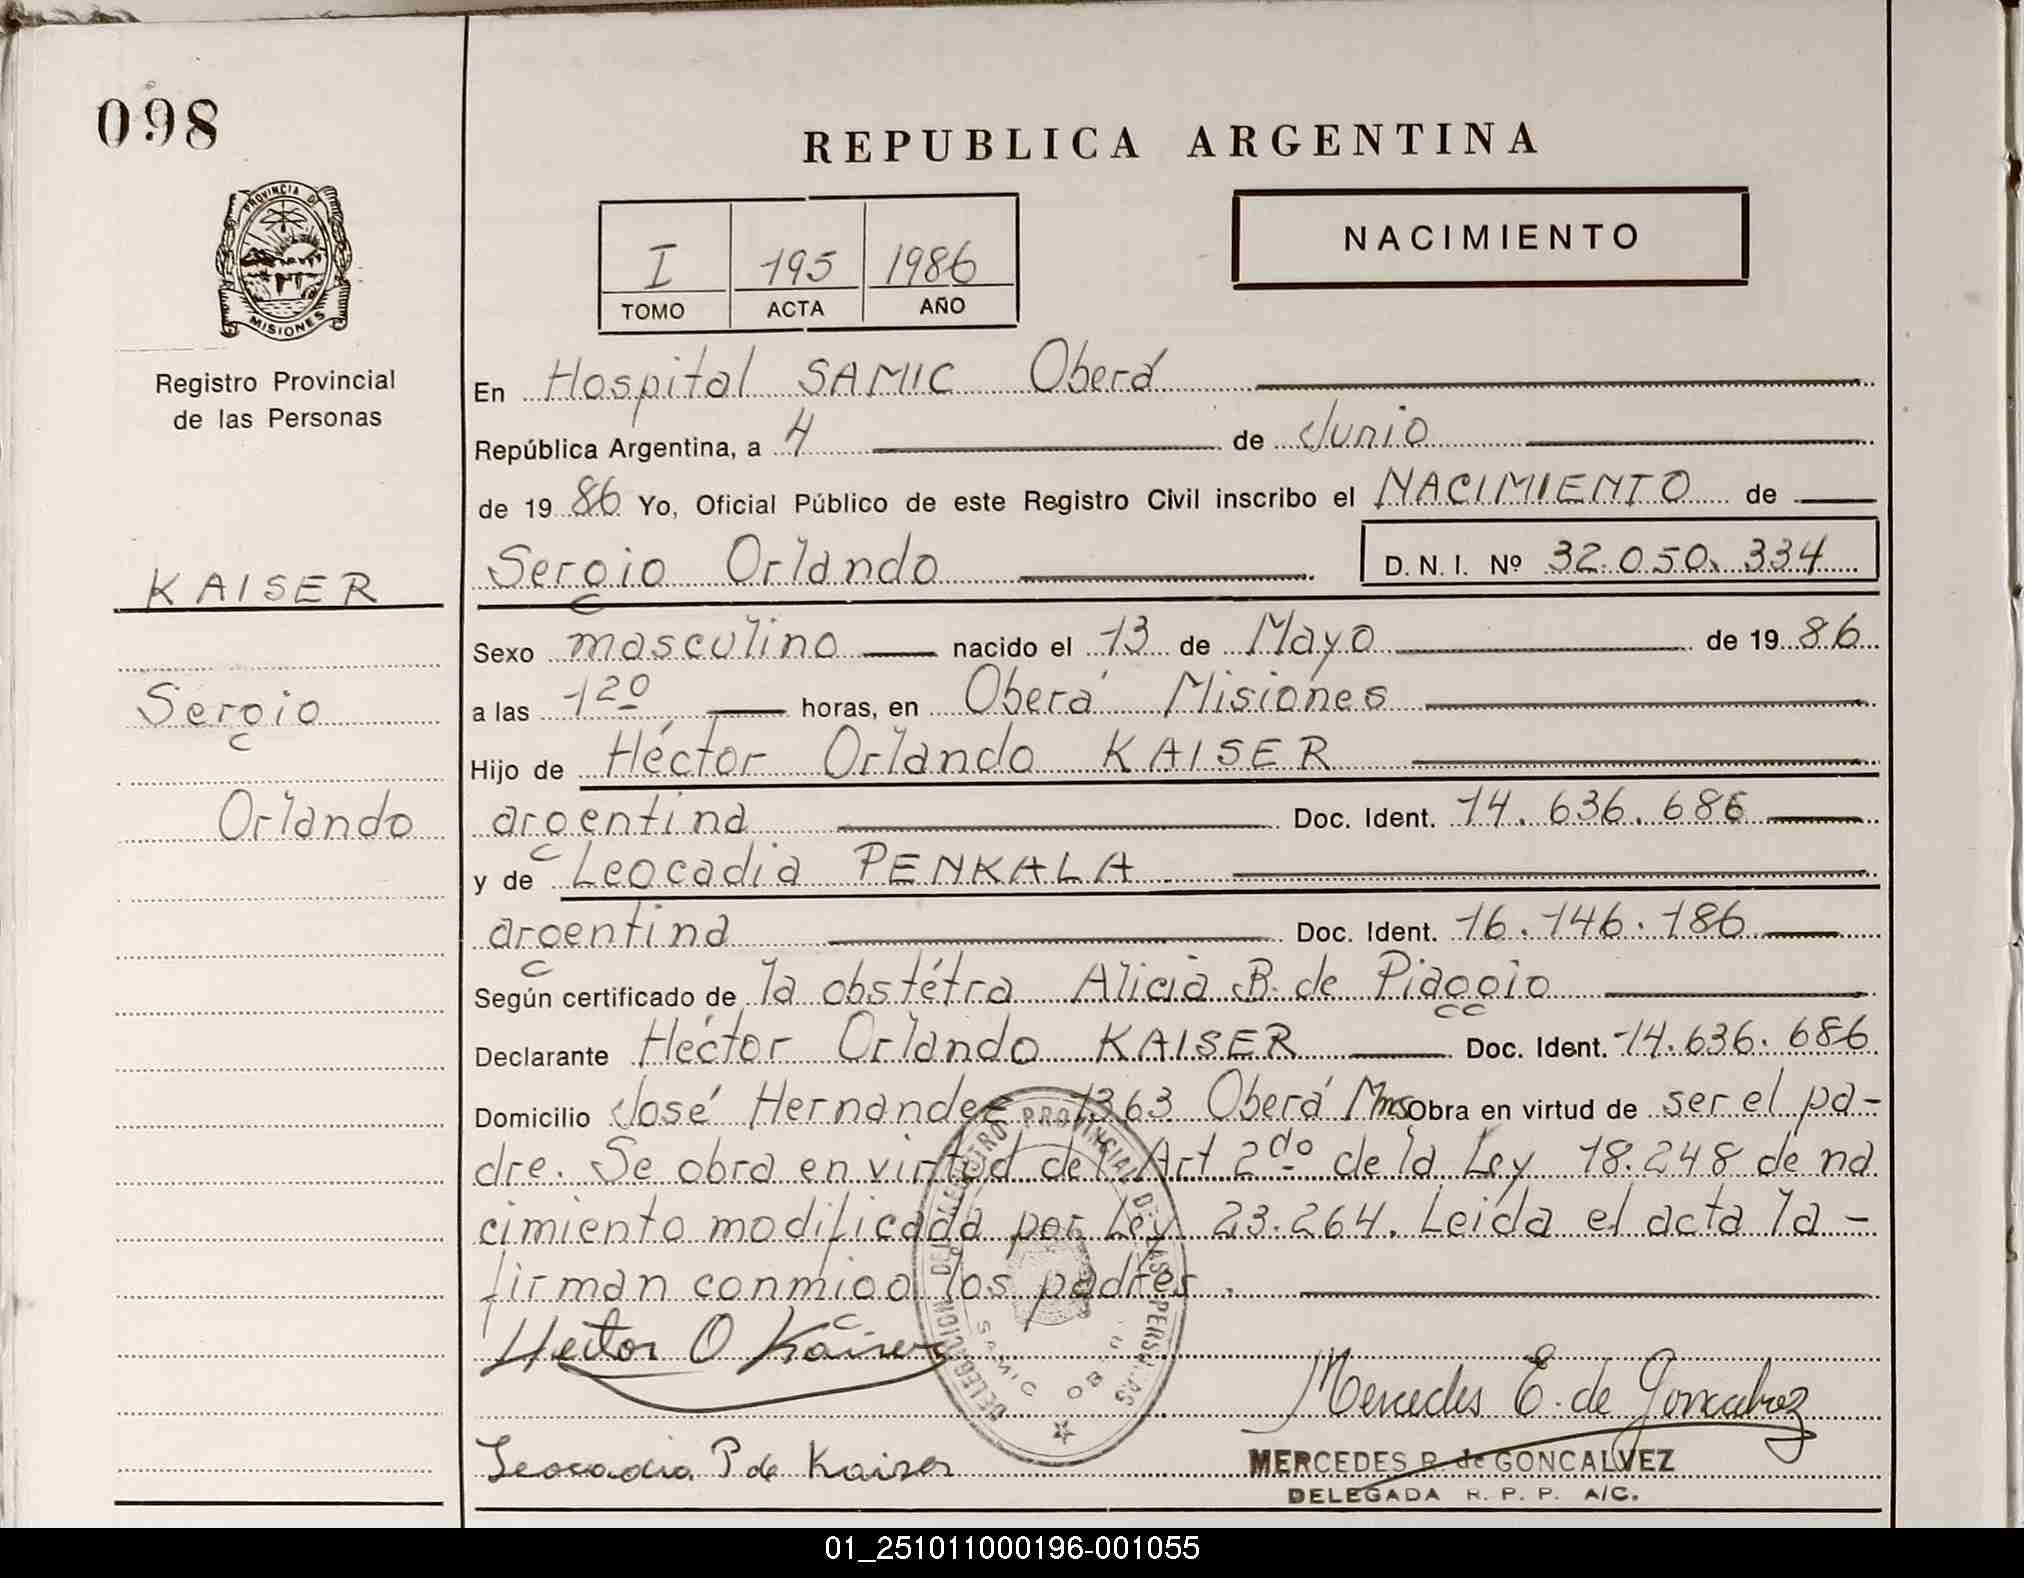 098
REPUBLICA ARGENTINA
PROVINCIA DE
MISIONES
I 195 1986
TOMO ACTA AÑO
NACIMIENTO
Registro Provincial
de las Personas
En Hospital SAMIC Oberá
República Argentina, a 4 de Junio
de 19 86 Yo, Oficial Público de este Registro Civil inscribo el NACIMIENTO de
Sergio Orlando D. N. I. Nº 32.050.334
KAISER
Sergio
Orlando
Sexo masculino nacido el 13 de Mayo de 19 86
a las 12º horas, en Oberá Misiones
Hijo de Héctor Orlando KAISER
argentina Doc. Ident. 14.636.686
y de Leocadia PENKALA
argentina Doc. Ident. 16.146.186
Según certificado de la obstétra Alicia B. de Piaggio
Declarante Héctor Orlando KAISER Doc. Ident. 14.636.686
Domicilio José Hernandez 1363 Oberá Mnes Obra en virtud de ser el pa-
dre. Se obra en virtud del Art 2do de la Ley 18.248 de na
cimiento modificada por Ley 23.264. Leída el acta la -
firman conmigo los padres.
DELEGACION DEL REGISTRO PROVINCIAL DE LAS PERSONAS
SAMIC
Hector O Kaiser
Mercedes E. de Goncalvez
Leocadia P de Kaiser
MERCEDES P. de GONCALVEZ
DELEGADA R. P. P. A/C.
01_251011000196-001055